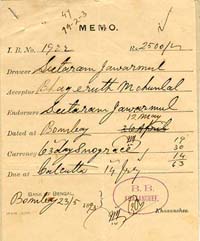 47
79-2-3
MEMO.
I. B. No. 1922 Rs 2500/-
Drawer Seetaram Jawarmul
Acceptor Bhageruth Mohunlal
Endorsers Seetaram Jawarmul
12 May
Dated at Bombay 26 April
Currency 63 days 19
30
14
63
Due at Calcutta 14 July
B. B.
BANK OF BENGAL,
Bombay 23/5 192
Khazanchee.